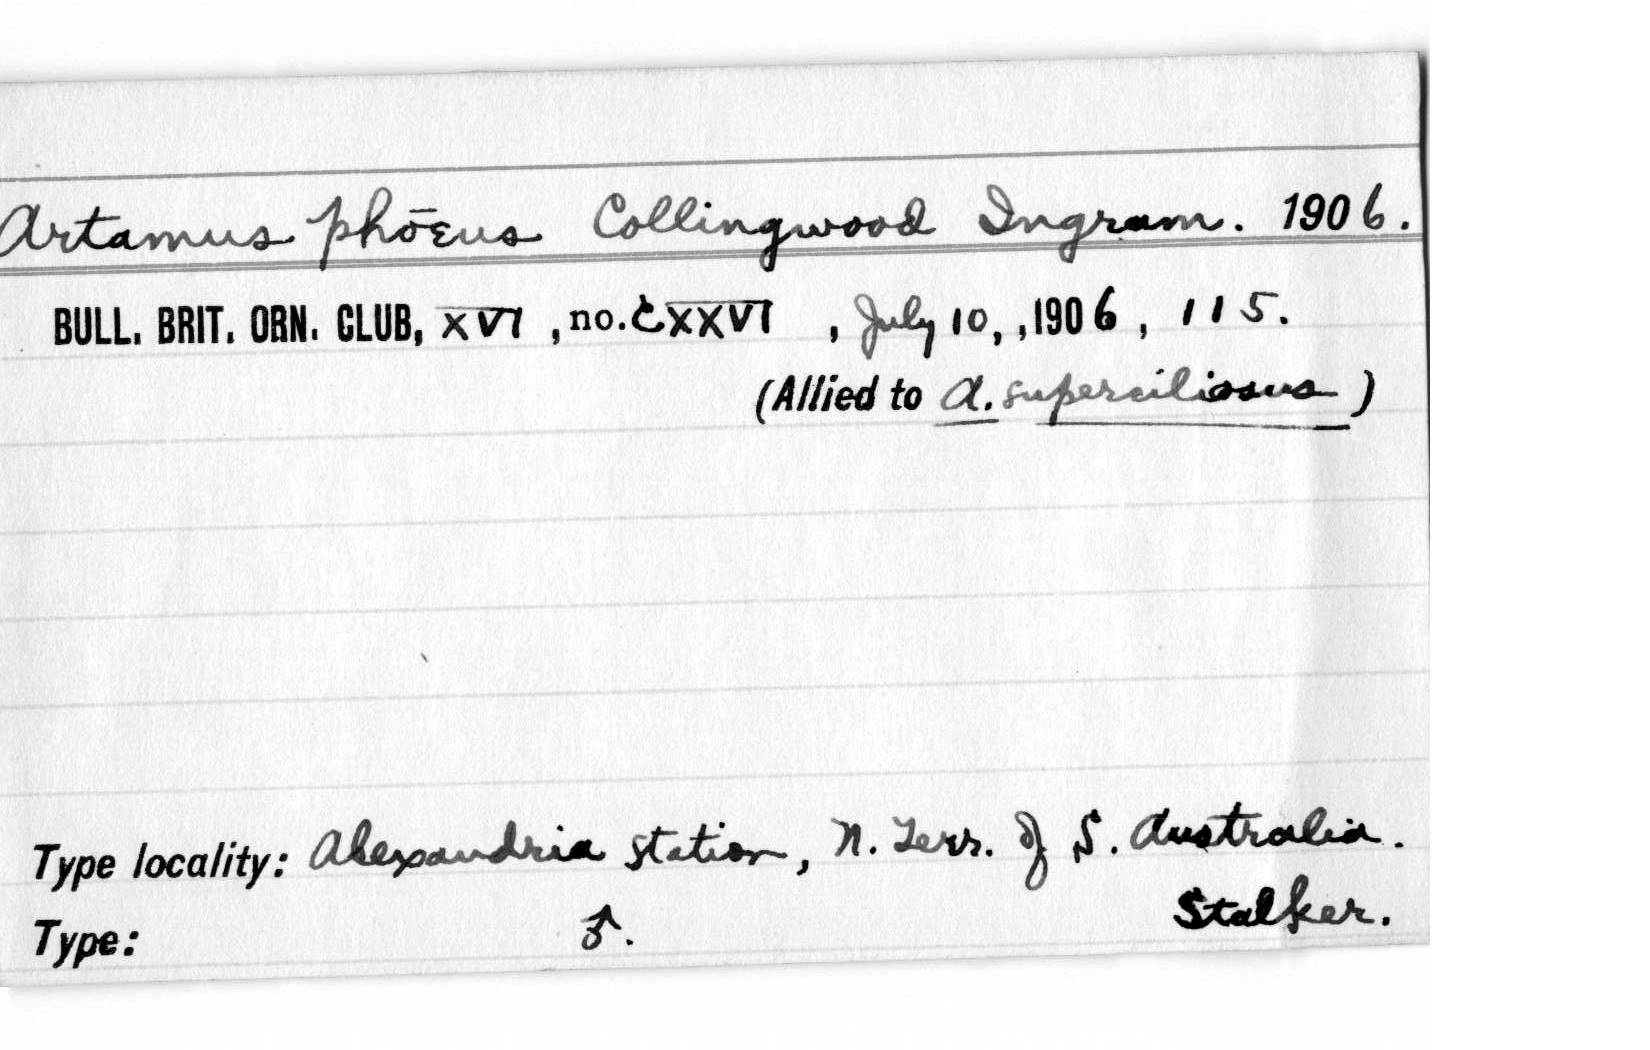 Artamus phōeus Collingwood Ingram. 1906.
BULL. BRIT. ORN. CLUB, XVI , no. CXXVI , July 10, ,1906 , 115.
(Allied to A. superciliosus )
Type locality: Alexandria station, N. Terr. of S. Australia.
Stalker.
Type: ♂.